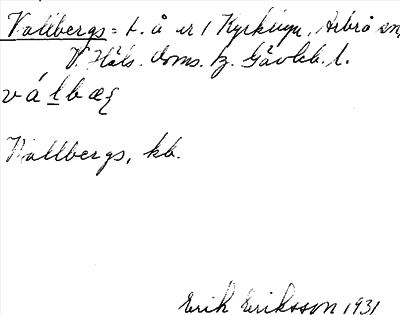 Vallbergs = t. å nr 1 Kyrkbyn, Arbrå sn,
V. Häls. doms. hz. Gävleb. l.
válbæ
Vallbergs, kb.
Erik Eriksson 1931